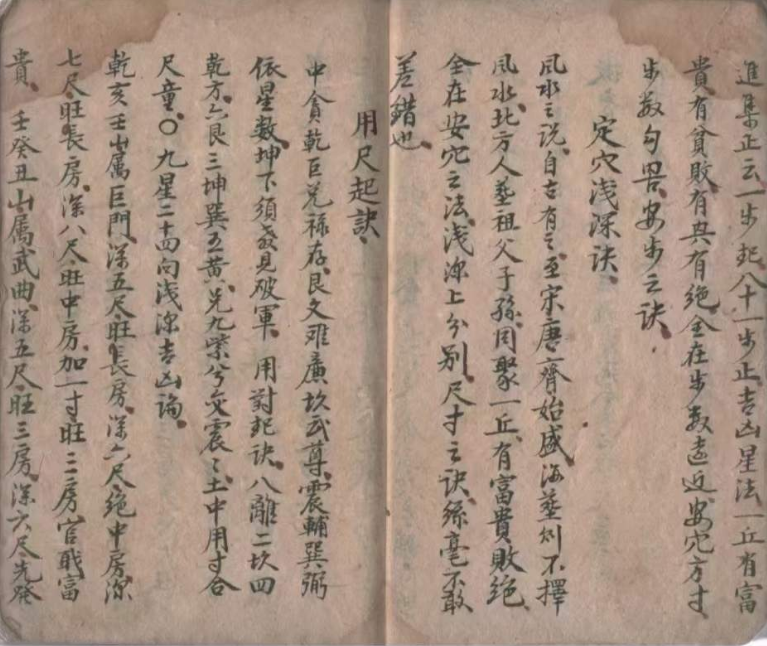 進集正云一步起八十一步止吉凶星法一丘有富
貴有貧敗有興有絕全在步数遠近安穴方寸
步数勾畧安步之訣
定穴浅深訣
風水之説自古有之至宋唐齊始盛海葬则不擇
風水北方人葬祖父子孫同聚一丘有富貴敗绝
全在安穴之法浅深上分别尺寸之訣絲毫不敢
差錯也
用尺起訣
中貪乾巨兌禄存艮文难廉坎武尊震輔巽弼
依星数坤下須教見破軍 用對起訣八離二坎四
乾方六艮三坤巽五黄兑九紫兮灾震之土中用寸合
尺童〇九星二十四向浅深吉凶論
乾亥壬山属巨門深五尺旺長房深六尺絶中房深
七尺旺長房深八尺旺中房加一寸旺二房官職富
貴 壬癸丑山属武曲深五尺旺三房深六尺先發